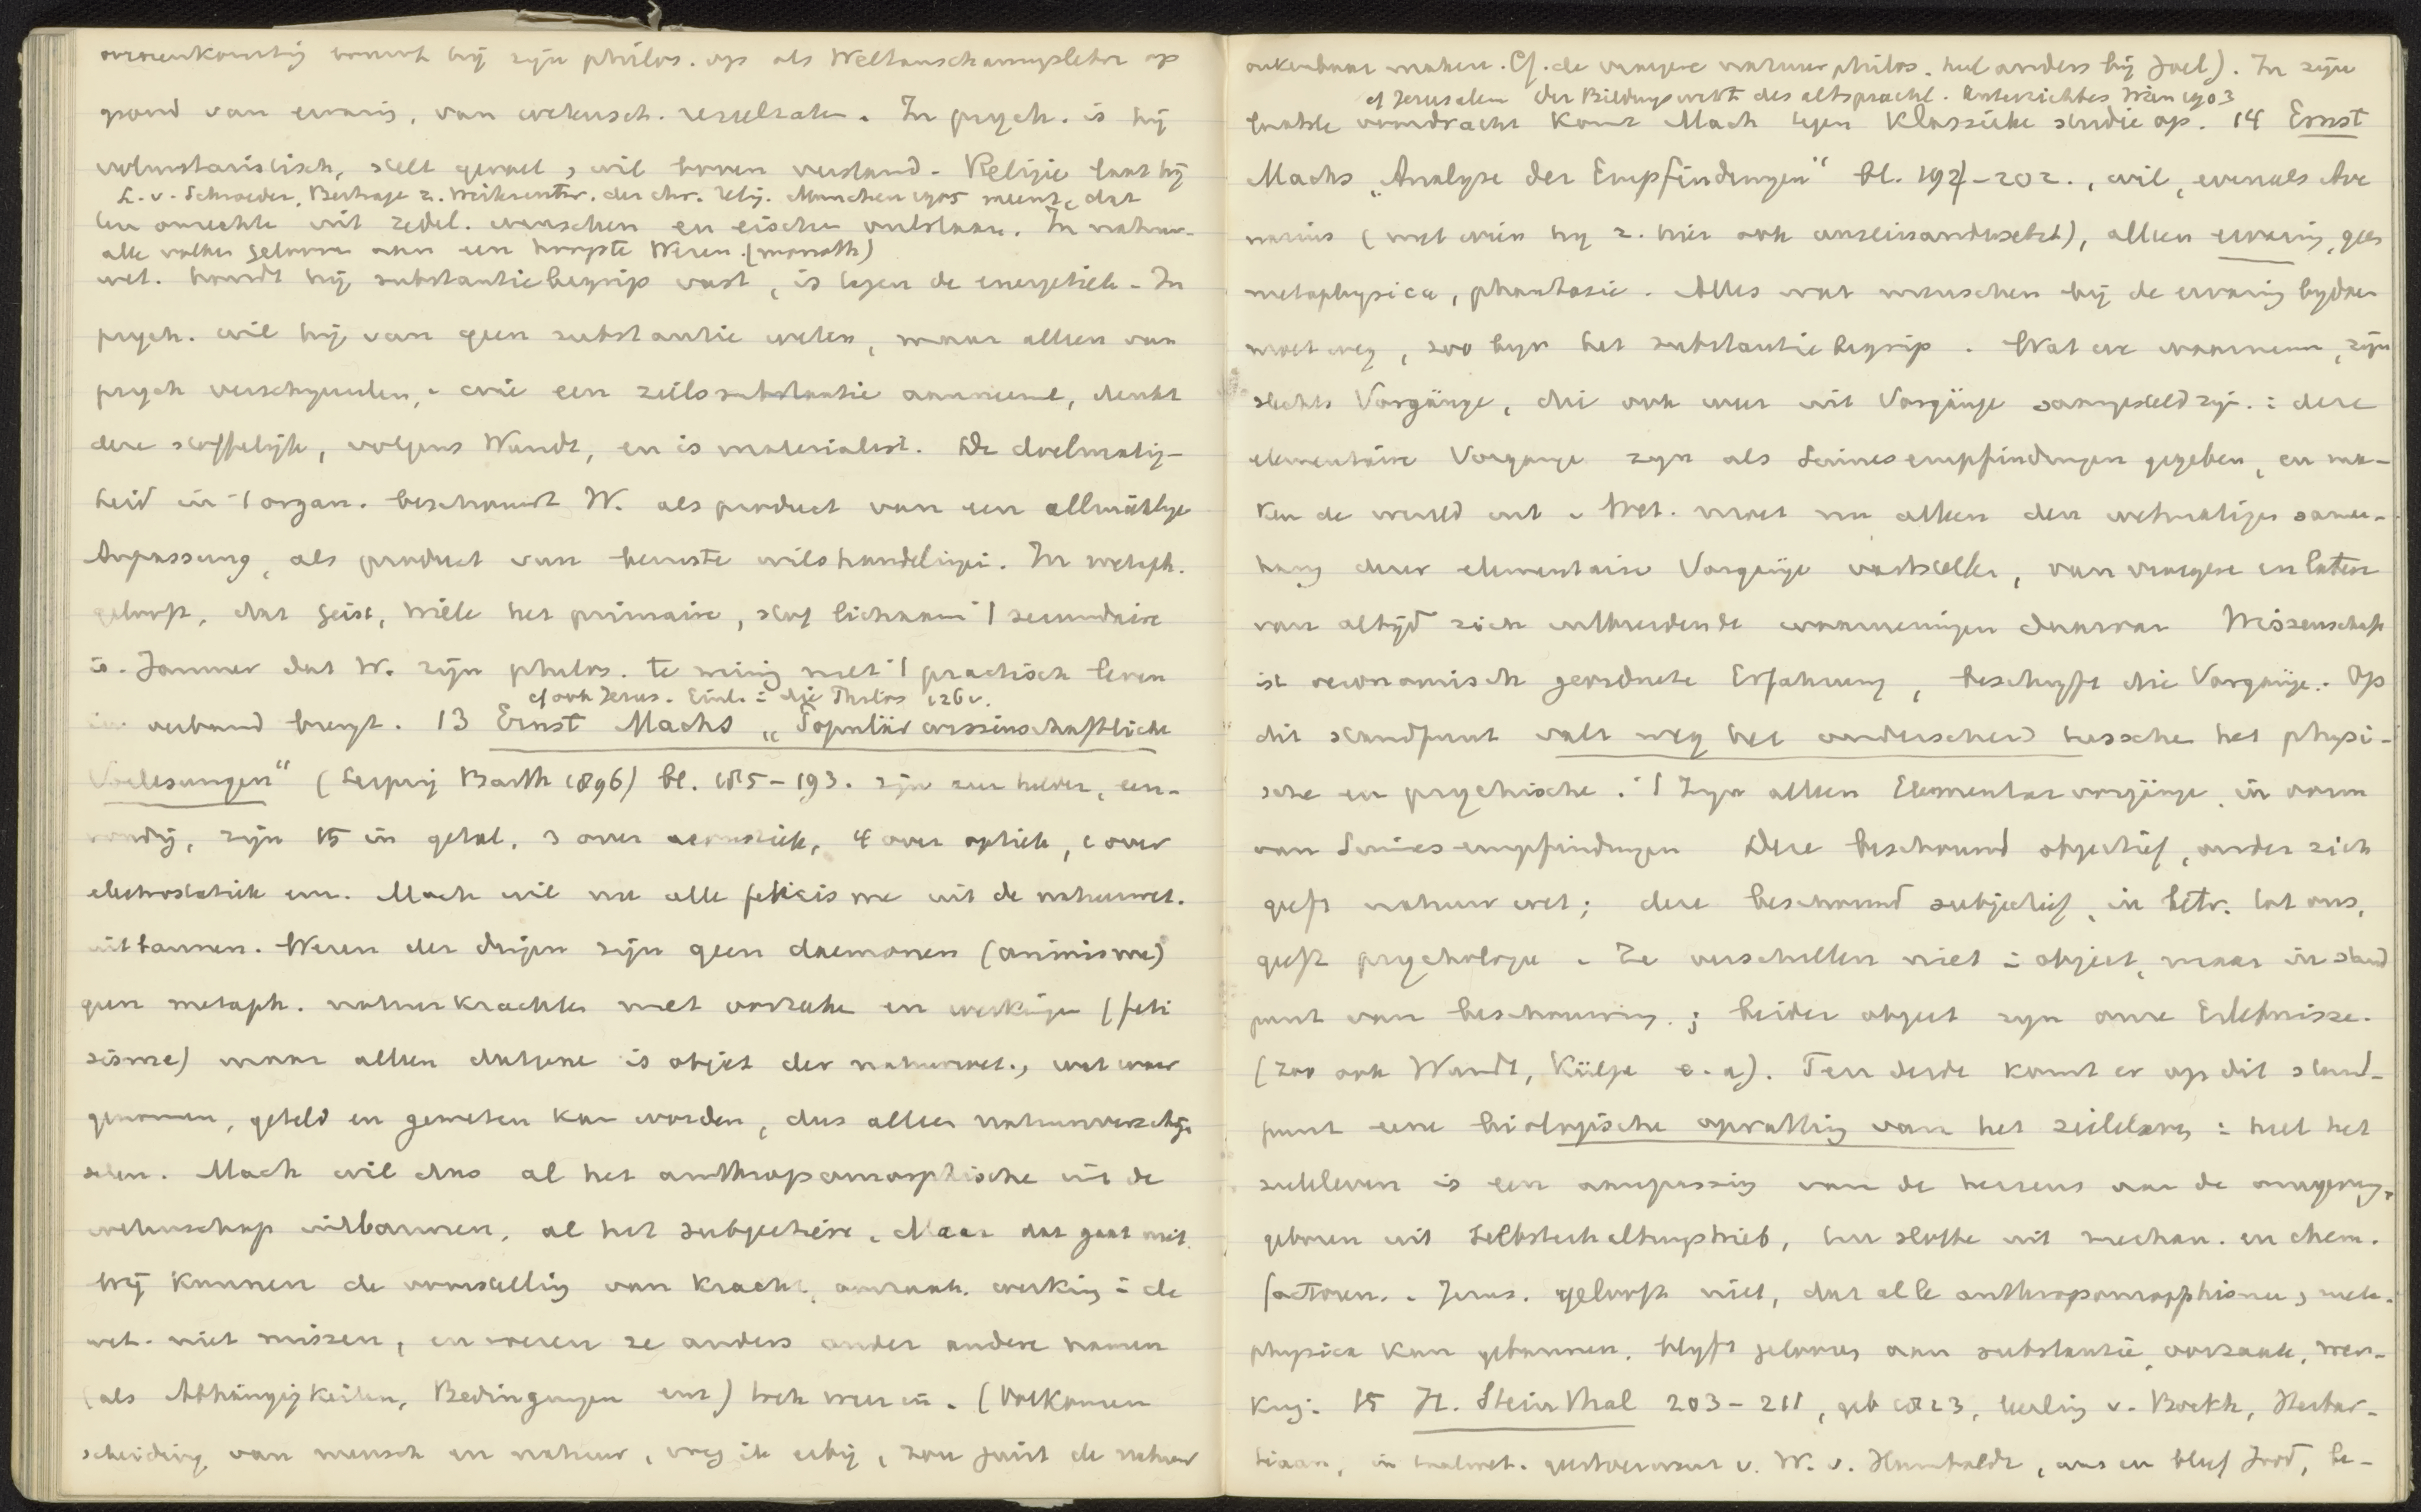 overeenkomstig bouwt hij zijn philos. op als Weltanschauungslehre op
grond van ervaring, van wetensch. resultaten. In psych. is hij
voluntaristisch, stelt gevoel, wil boven verstand. Religie laat hij
L. v. Schroeder, Beitrage z. Weiterentw. der chr. Relig. Munchen 1905 meent, dat
ten onrechte uit zedel. wenschen en eischen ontstaan. In natuur-
alle volken gelooven aan een hoogste Wezen. (monoth)
wet. houdt hij substantiebegrip vast, is tegen de energetiek. In
psych. wil hij van geen substantie weten, maar alleen van
psych verschijnselen, wie een zielssubstantie aanneemt, denkt
deze stoffelijk, volgens Wundt, en is materialist. De doelmatig-
heid in 't organ. beschouwt W. als product van een allmähliche
Anpassung, als product van bewuste wilshandelingen. In metaph.
gelooft, dat Geist, Wille het primaire, stof lichaam 't secundaire
is. Jammer dat W. zijn philos. te weinig met 't practisch leven
cf ook Jerus. Einl. in die Philos 126v.
in verband brengt. 13 Ernst Machs „Populär wissenschaftliche
Vorlesungen" (Leipzig Barth 1896) bl. 185-193. zijn zeer helder, een-
voudig, zijn 15 in getal, 3 over acoustiek, 4 over optiek, 1 over
electrostatiek enz. Mach wil nu alle fetisisme uit de natuurwet.
uitbannen. Wezen der dingen zijn geen daemonen (animisme)
geen metaph. natuurkrachten met oorzaken en werkingen (feti
sisme) maar alleen datgene is object der natuurwet., wat waar
genomen, geteld en gemeten kan worden, dus alleen natuurverschijn
selen. Mach wil dus al het anthropomorphische uit de
wetenschap uitbannen, al het subjectieve. Maar dat gaat niet.
Wij kunnen de voorstelling van kracht, oorzaak, werking in de
wet. niet missen, en voeren ze anders onder andere namen
(als Abhängigkeiten, Bedingungen enz) toch weer in. (Volkomen
scheiding van mensch en natuur, voeg ik erbij, zou juist de natuur
onkenbaar maken. Cf. de vroegere natuurphilos. heel anders bij Joel). In zijn
cf Jerusalem Der Bildungswert des altsprachl. Unterrichtes Wien 1903
laatste voordracht komt Mach tegen Klassieke studie op. 14 Ernst
Machs „Analyse der Empfindungen" bl. 194-202., wil, evenals Ave
narius (met wien hij z. hier ook auseinandersetzt), alleen ervaring, geen
metaphysica, phantasie. Alles wat menschen bij de ervaring bijdoen
moet weg, zoo bijv het substantiebegrip. Wat we waarnemen, zijn
slechts Vorgänge, die ook weer uit Vorgänge saamgesteld zijn: deze
elementaire Vorgange zijn als Sinnesempfindungen gegeben, en ma-
ken de wereld uit. Wet. moet nu alleen den wetmatigen samen-
hang dezer elementaire Vorgänge vaststellen, van vroegere en latere
van altijd zich uitbreidende waarnemingen daarvan Wissenschaft
ist oeconomisch geordnete Erfahrung, beschrijft die Vorgänge. Op
dit standpunt valt weg het onderscheid tusschen het physi-
sche en psychische. 't Zijn alleen Elementarvorgänge, in vorm
van Sinnesempfindungen Deze beschouwd objectief, onder zich
geeft natuurwet; deze beschouwd subjectief, in betr. tot ons,
geeft psychologie. Ze verschillen niet in object, maar in stand
punt van beschouwing; beider object zijn onze Erlebnisse.
(Zoo ook Wundt, Külpe e.a). Ten derde komt er op dit stand-
punt eene biologische opvatting van het zieleleven: heel het
zieleleven is een aanpassing van de hersens aan de omgeving,
geboren uit Selbsterhaltungstrieb, ten slotte uit mechan. en chem.
factoren. Jerus. gelooft niet, dat alle anthropomorphisme, meta-
physica kan gebannen, blijft gelooven aan substantie, oorzaak, wer-
king. 15 H. Steinthal 203-211, geb 1823, leerling v. Boekh, Herbar-
tiaan, in taalwet. geestverwant v. W. v. Humboldt, was en bleef Jood, be-